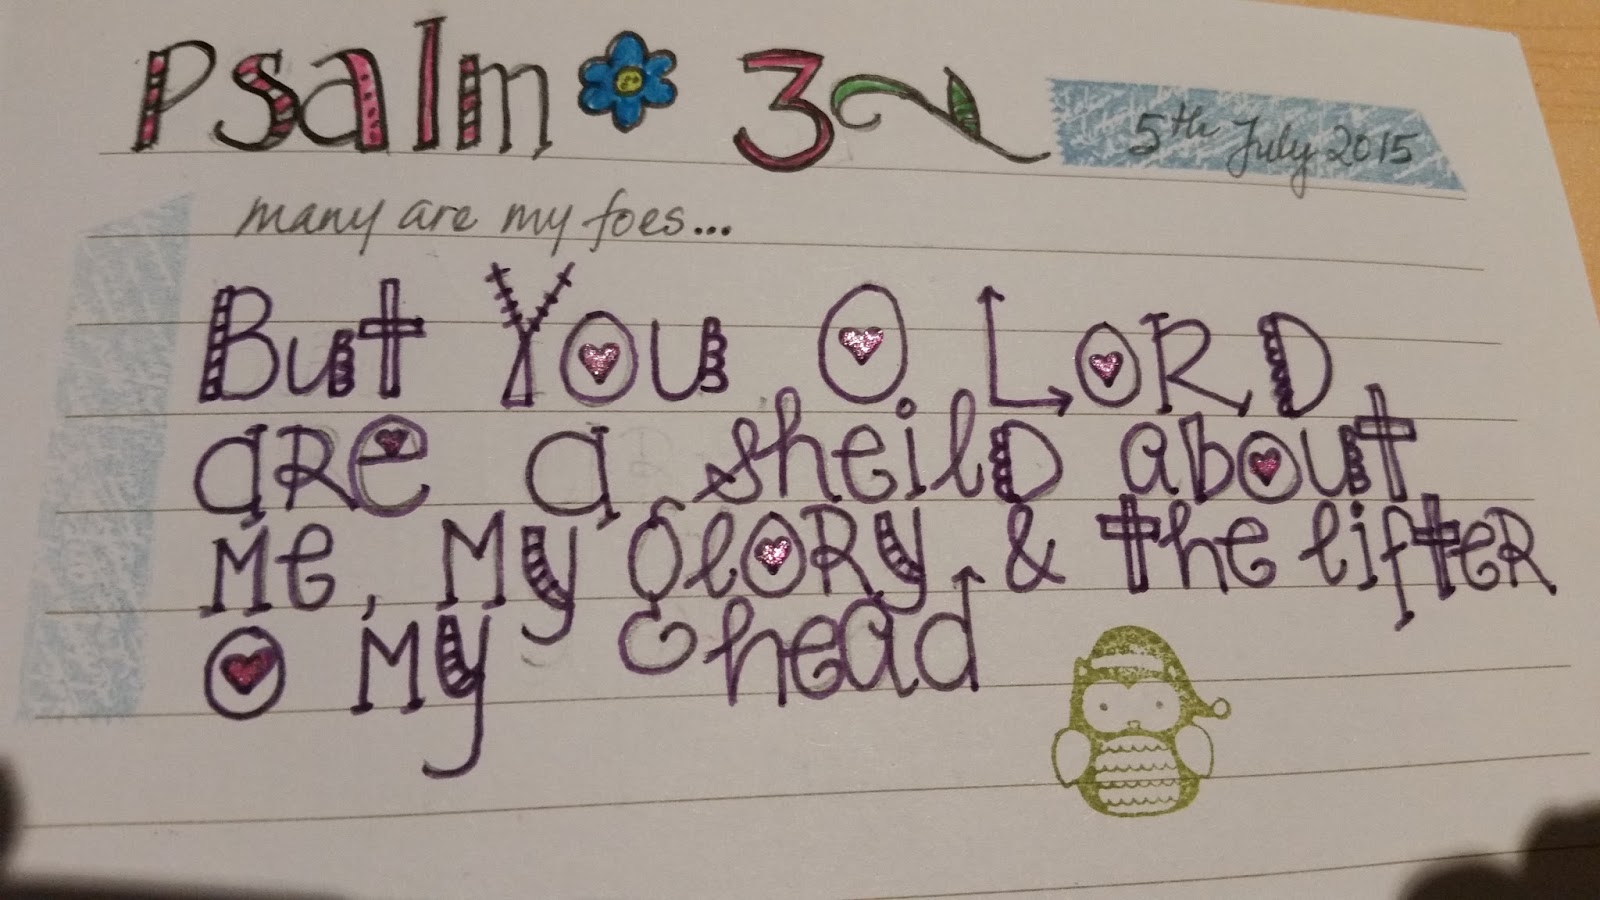 Psalm 3
5th July 2015
many are my foes...
But You O LORD,
are a sheild about
Me, My Glory, & the lifter
O My head